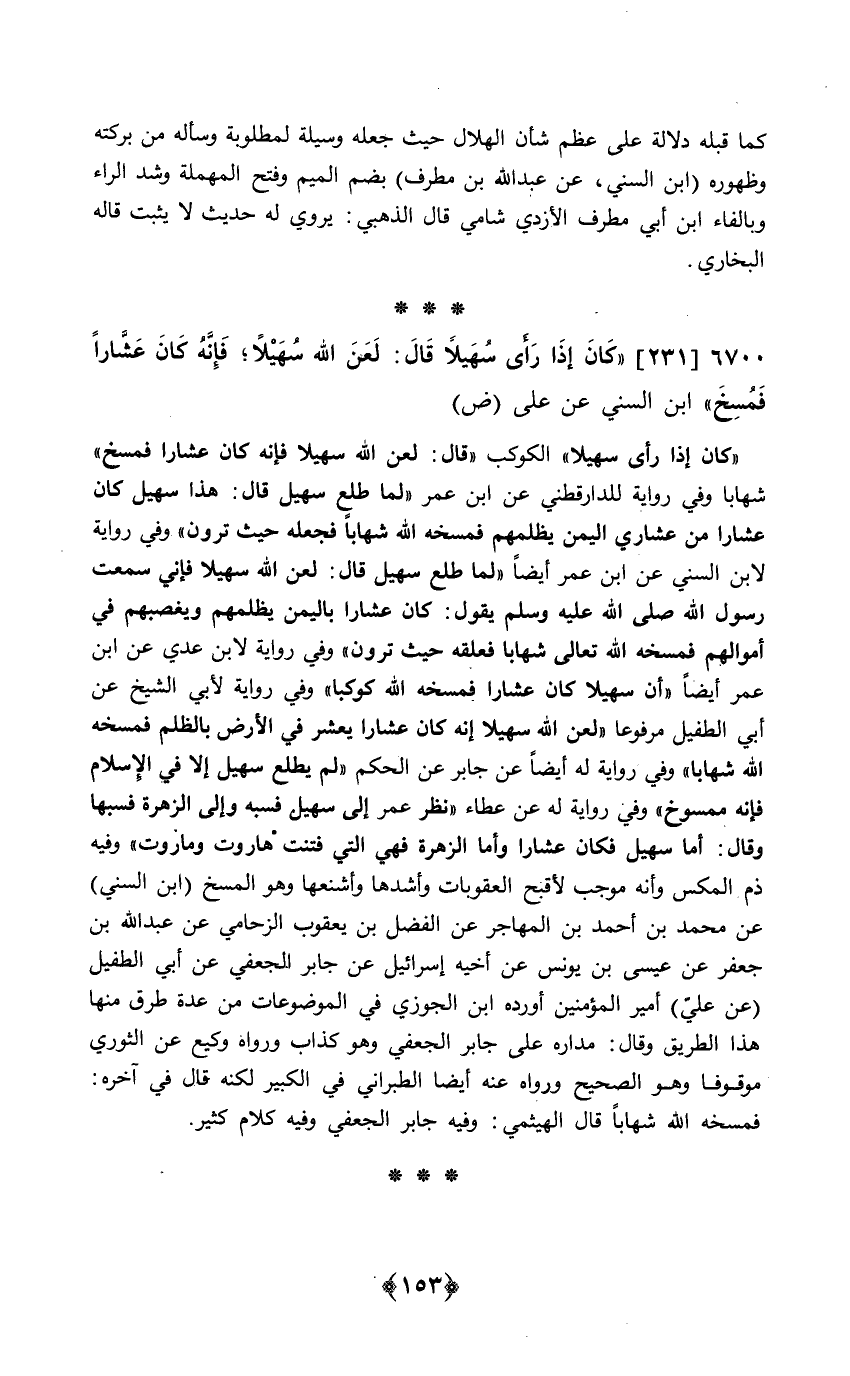 كما قبله دلالة على عظم شأن الهلال حيث جعله وسيلة لمطلوبة وسأله من بركته
وظهوره (ابن السني، عن عبدالله بن مطرف) بضم الميم وفتح المهملة وشد الراء
وبالفاء ابن أبي مطرف الأزدي شامي قال الذهبي: يروي له حديث لا يثبت قاله
البخاري.
* * *
٦٧٠٠ [٢٣١] «كَانَ إذَا رَأَى سُهَيلاً قَالَ: لَعَنَ الله سُهَيْلاً؛ فَإِنَّهُ كَانَ عَشَّاراً
فَمُسِخَ» ابن السني عن على (ض)
«كان إذا رأى سهيلا» الكوكب «قال: لعن الله سهيلا فإنه كان عشارا فمسخ»
شهابا وفي رواية للدارقطني عن ابن عمر «لما طلع سهيل قال: هذا سهيل كان
عشارا من عشاري اليمن يظلمهم فمسخه الله شهاباً فجعله حيث ترون» وفي رواية
لابن السني عن ابن عمر أيضاً «لما طلع سهيل قال: لعن الله سهيلا فإني سمعت
رسول الله صلى الله عليه وسلم يقول: كان عشارا باليمن يظلمهم ويغصبهم في
أموالهم فمسخه الله تعالى شهابا فعلقه حيث ترون» وفي رواية لابن عدي عن ابن
عمر أيضاً «أن سهيلا كان عشارا فمسخه الله كوكبا» وفي رواية لأبي الشيخ عن
أبي الطفيل مرفوعا «لعن الله سهيلا إنه كان عشارا يعشر في الأرض بالظلم فمسخه
الله شهابا» وفي رواية له أيضاً عن جابر عن الحكم «لم يطلع سهيل إلا في الإسلام
فإنه ممسوخ» وفي رواية له عن عطاء «نظر عمر إلى سهيل فسبه وإلى الزهرة فسبها
وقال: أما سهيل فكان عشارا وأما الزهرة فهي التي فتنت هاروت وماروت» وفيه
ذم المكس وأنه موجب لأقبح العقوبات وأشدها وأشنعها وهو المسخ (ابن السني)
عن محمد بن أحمد بن المهاجر عن الفضل بن يعقوب الزحامي عن عبدالله بن
جعفر عن عيسى بن يونس عن أخيه إسرائيل عن جابر الجعفي عن أبي الطفيل
(عن عليّ) أمير المؤمنين أورده ابن الجوزي في الموضوعات من عدة طرق منها
هذا الطريق وقال: مداره على جابر الجعفي وهو كذاب ورواه وكيع عن الثوري
موقوفا وهو الصحيح ورواه عنه أيضا الطبراني في الكبير لكنه قال في آخره:
فمسخه الله شهاباً قال الهيثمي: وفيه جابر الجعفي وفيه كلام كثير.
* * *
﴿١٥٣﴾